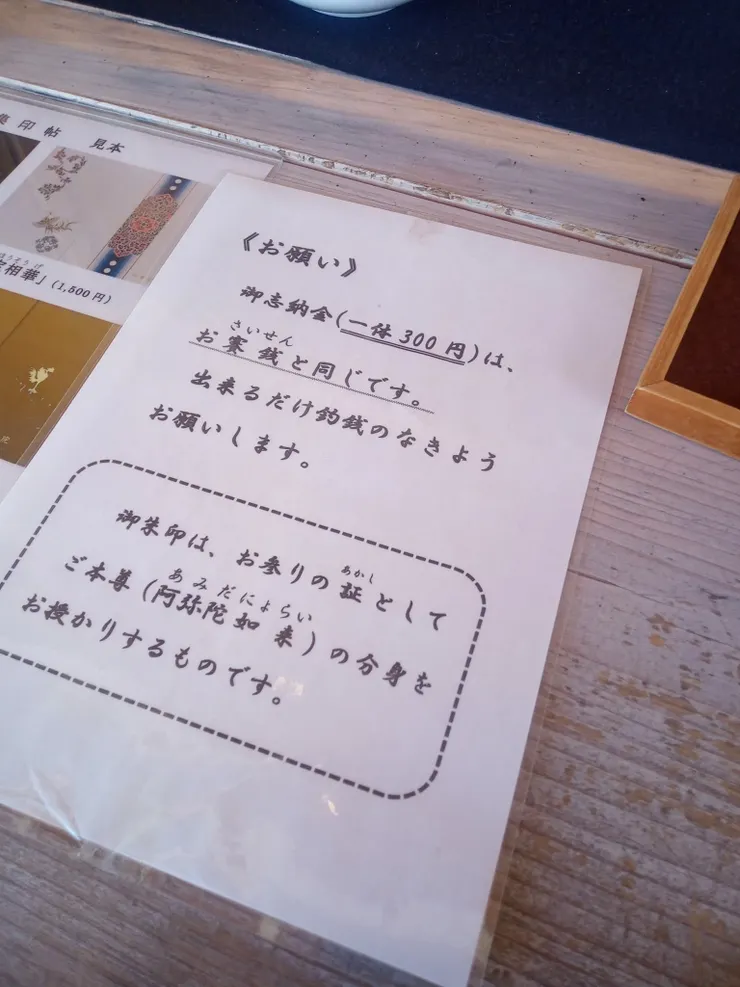 集印帖 見本
相華」(1,500円)
《お願い》
御志納金(一体300円)は、
さいせん
お賽銭と同じです。
出来るだけ釣銭のなきよう
お願いします。
御朱印は、お参りの証として
あかし
ご本尊(阿弥陀如来)の分身を
あみだにょらい
お授かりするものです。